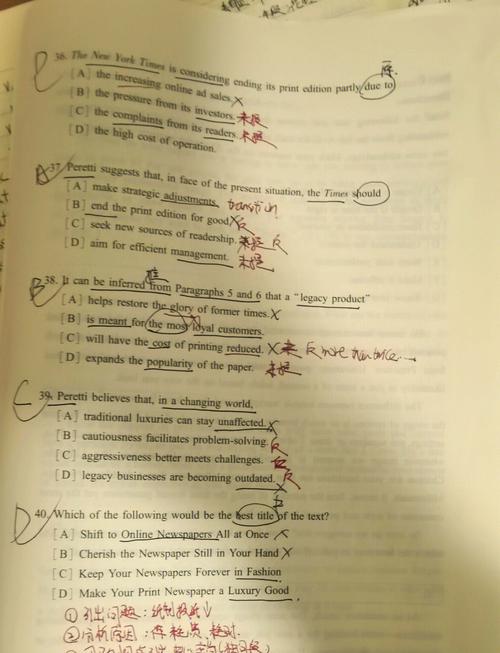 D 36. The New York Times is considering ending its print edition partly due to
[A] the increasing online ad sales. X
[B] the pressure from its investors. 未提
[C] the complaints from its readers. 未提
[D] the high cost of operation.
A 37. Peretti suggests that, in face of the present situation, the Times should
[A] make strategic adjustments.
[B] end the print edition for good. X 反
[C] seek new sources of readership. 未提 反
[D] aim for efficient management. 未提
B 38. It can be inferred from Paragraphs 5 and 6 that a “legacy product”
[A] helps restore the glory of former times. X
[B] is meant for the most loyal customers.
[C] will have the cost of printing reduced. X 未 反 more
[D] expands the popularity of the paper. 未提
C 39. Peretti believes that, in a changing world,
[A] traditional luxuries can stay unaffected. X
[B] cautiousness facilitates problem-solving. 反
[C] aggressiveness better meets challenges.
[D] legacy businesses are becoming outdated. 反
D 40. Which of the following would be the best title of the text?
[A] Shift to Online Newspapers All at Once X
[B] Cherish the Newspaper Still in Your Hand X
[C] Keep Your Newspapers Forever in Fashion
[D] Make Your Print Newspaper a Luxury Good
① 引出问题：纸制报纸↓
② 分析原因：